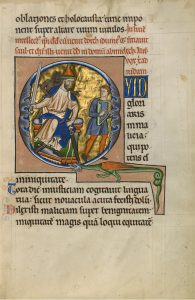 oblationes et holocausta tunc impo
nent super altare tuum uitulos
UID
glori
aris
in ma
licia
qui po
tens es
in iniquitate
Tota die iniusticiam cogitauit lingua
tua sicut nouacula acuta fecisti dolū
Dilexisti maliciam super benignitatem
iniquitatem magis quam loqui equitatem